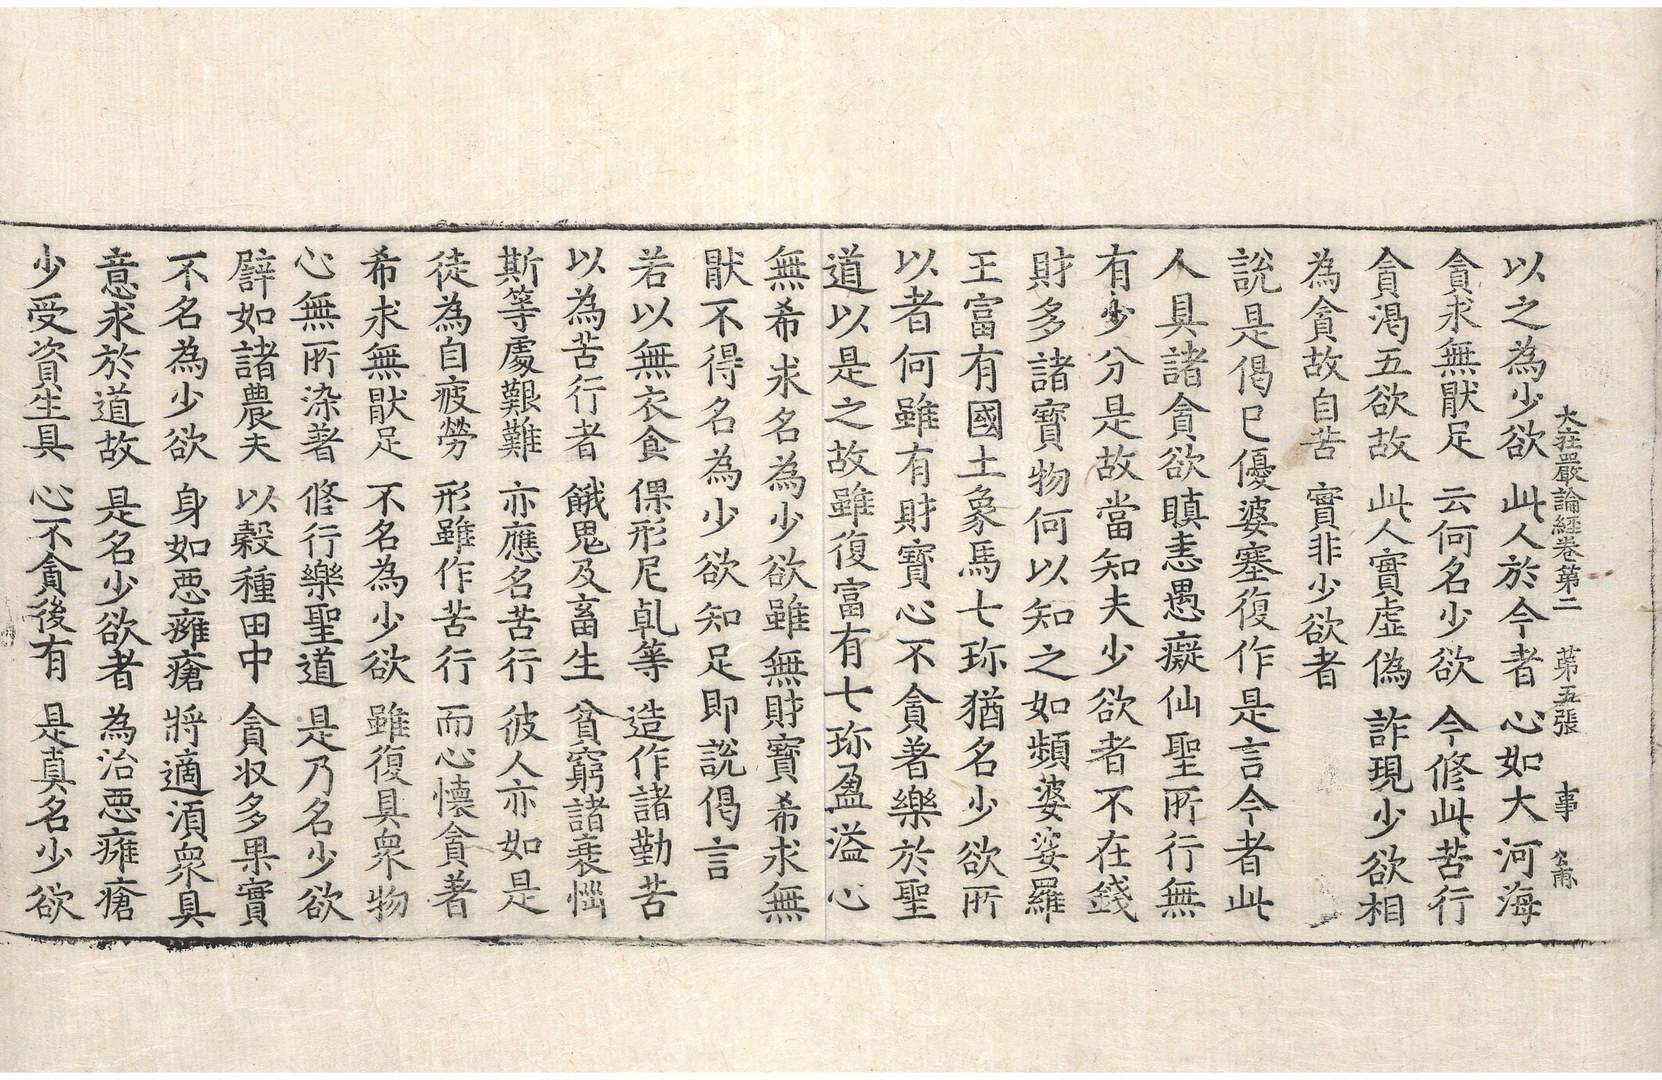 大莊嚴論經卷第二 第五張 事
以之為少欲 此人於今者 心如大河海
貪求無猒足 云何名少欲 今修此苦行
貪渴五欲故 此人實虛偽 詐現少欲相
為貪故自苦 實非少欲者
說是偈已優婆塞復作是言今者此
人具諸貪欲瞋恚愚癡仙聖所行無
有少分是故當知夫少欲者不在錢
財多諸寶物何以知之如頻婆娑羅
王富有國土象馬七珎猶名少欲所
以者何雖有財寶心不貪著樂於聖
道以是之故雖復富有七珎盈溢心
無希求名為少欲雖無財寶希求無
猒不得名為少欲知足即說偈言
若以無衣食 倮形尼乹等 造作諸勤苦
以為苦行者 餓鬼及畜生 貧窮諸衰惱
斯等處艱難 亦應名苦行 彼人亦如是
徒為自疲勞 形雖作苦行 而心懷貪著
希求無猒足 不名為少欲 雖復具衆物
心無所染著 修行樂聖道 是乃名少欲
辟如諸農夫 以穀種田中 貪収多果實
不名為少欲 身如惡癰瘡 將適湏衆具
意求於道故 是名少欲者 為治惡癰瘡
少受資生具 心不貪後有 是真名少欲